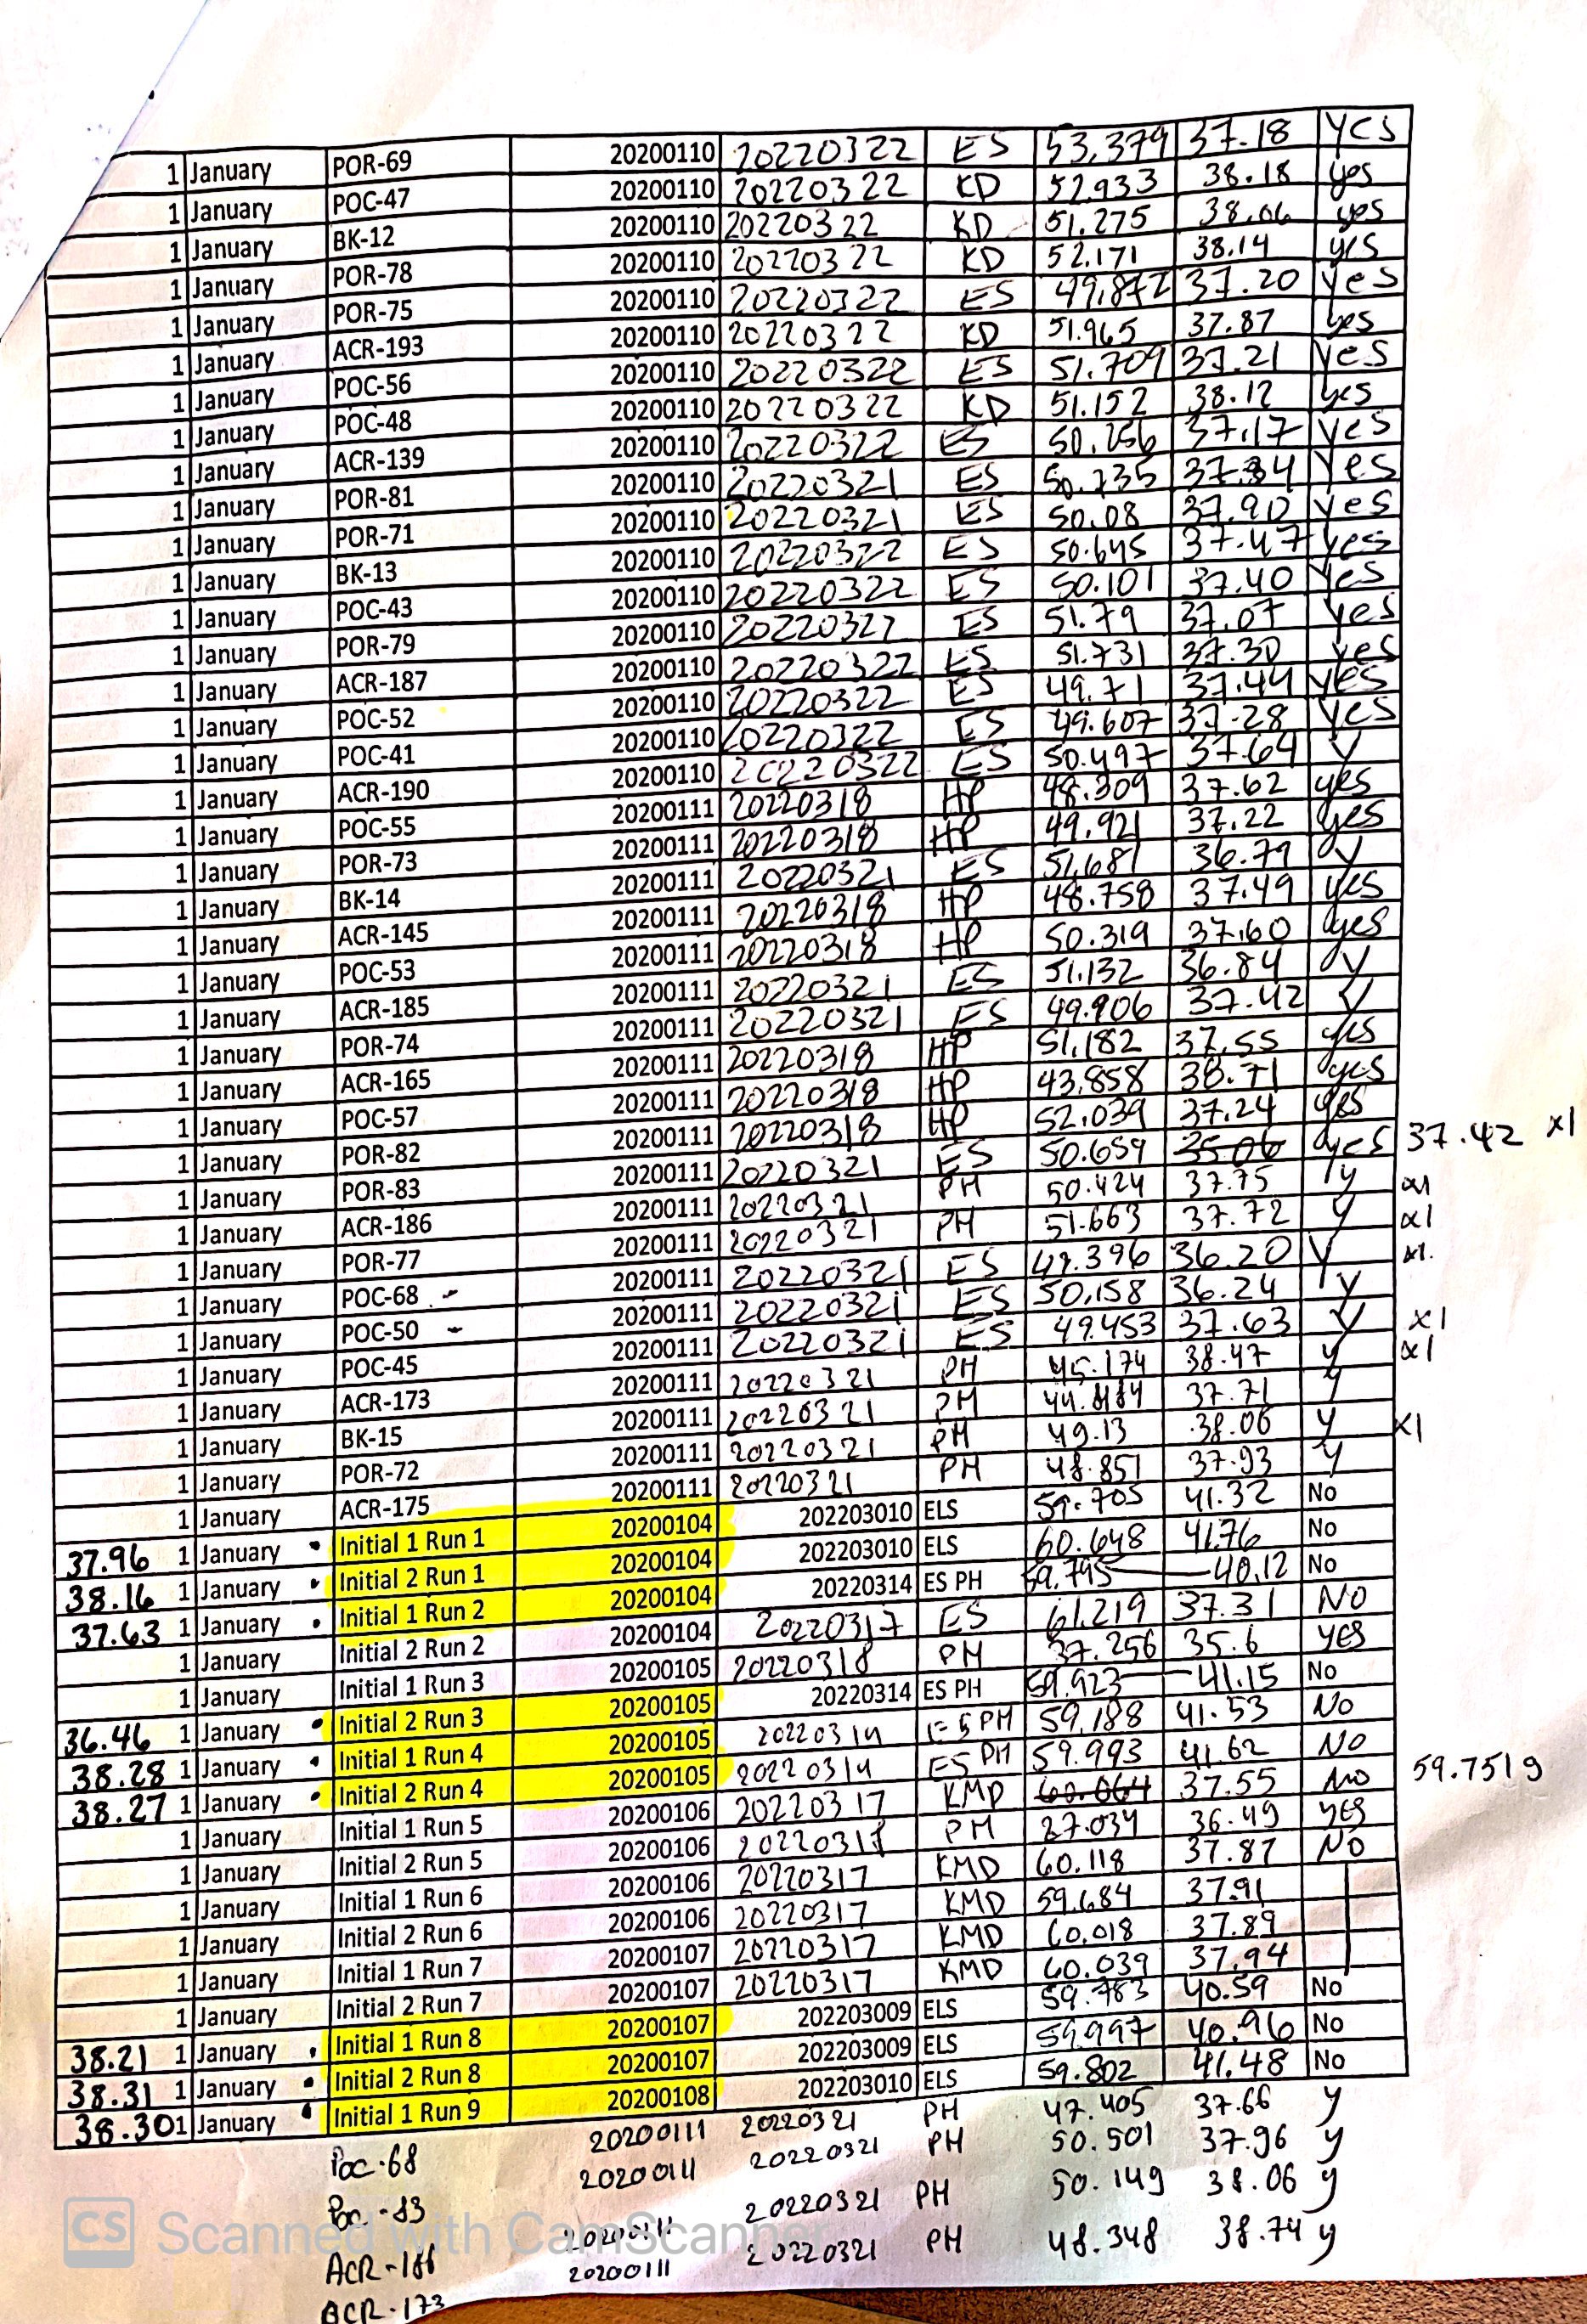 1 January POR-69 20200110 20220322 ES 53.379 37.18 YES
1 January POC-47 20200110 20220322 KD 52.933 38.18 yes
1 January BK-12 20200110 20220322 KD 51.275 38.06 yes
1 January POR-78 20200110 20220322 KD 52.171 38.14 yes
1 January POR-75 20200110 20220322 ES 49.872 37.20 yes
1 January ACR-193 20200110 20220322 KD 51.965 37.87 yes
1 January POC-56 20200110 20220322 ES 51.709 37.21 yes
1 January POC-48 20200110 20220322 KD 51.152 38.12 yes
1 January ACR-139 20200110 20220322 ES 50.256 37.17 yes
1 January POR-81 20200110 20220321 ES 50.735 37.34 Yes
1 January POR-71 20200110 20220321 ES 50.08 37.90 yes
1 January BK-13 20200110 20220322 ES 50.645 37.47 yes
1 January POC-43 20200110 20220322 ES 50.101 37.40 yes
1 January POR-79 20200110 20220322 ES 51.79 37.07 yes
1 January ACR-187 20200110 20220322 ES 51.731 37.30 yes
1 January POC-52 20200110 20220322 ES 49.71 37.44 yes
1 January POC-41 20200110 20220322 ES 49.607 37.28 yes
1 January ACR-190 20200110 20220322 ES 50.497 37.64 y
1 January POC-55 20200111 20220318 HP 48.309 37.62 yes
1 January POR-73 20200111 20220318 HP 49.921 37.22 yes
1 January BK-14 20200111 20220321 ES 51.681 36.79 y
1 January ACR-145 20200111 20220318 HP 48.758 37.49 yes
1 January POC-53 20200111 20220318 HP 50.319 37.60 yes
1 January ACR-185 20200111 20220321 ES 51.132 36.84 y
1 January POR-74 20200111 20220321 ES 49.906 37.42 y
1 January ACR-165 20200111 20220318 HP 51.182 37.55 yes
1 January POC-57 20200111 20220318 HP 43.858 38.71 yes
1 January POR-82 20200111 20220318 HP 52.039 37.24 yes
1 January POR-83 20200111 20220321 ES 50.659 35.06 yes 37.42 x1
1 January ACR-186 20200111 20220321 PH 50.424 37.75 y x1
1 January POR-77 20200111 20220321 PH 51.663 37.72 y x1
1 January POC-68 - 20200111 20220321 ES 47.396 36.20 y x1.
1 January POC-50 - 20200111 20220321 ES 50.158 36.24 y
1 January POC-45 20200111 20220321 ES 49.453 37.63 y x1
1 January ACR-173 20200111 20220321 PH 45.174 38.47 y x1
1 January BK-15 20200111 20220321 PH 37.71 y
1 January POR-72 20200111 20220321 PH 49.13 38.06 y x1
1 January ACR-175 20200111 20220321 PH 48.851 37.93 y
37.96 1 January • Initial 1 Run 1 20200104 202203010 ELS 59.705 41.32 No
38.16 1 January • Initial 2 Run 1 20200104 202203010 ELS 60.648 41.76 No
37.63 1 January • Initial 1 Run 2 20200104 20220314 ES PH 59.795 40.12 No
1 January Initial 2 Run 2 20200104 20220317 ES 61.219 37.31 NO
1 January Initial 1 Run 3 20200105 20220318 PH 37.256 35.6 YES
36.46 1 January • Initial 2 Run 3 20200105 20220314 ES PH 59.923 41.15 No
38.28 1 January • Initial 1 Run 4 20200105 20220314 ES PH 59.188 41.53 No
38.27 1 January • Initial 2 Run 4 20200105 20220314 ES PH 59.993 41.62 NO
1 January Initial 1 Run 5 20200106 20220317 KMD 60.064 37.55 No 59.751g
1 January Initial 2 Run 5 20200106 20220317 PH 27.034 36.49 YES
1 January Initial 1 Run 6 20200106 20220317 KMD 60.118 37.87 NO
1 January Initial 2 Run 6 20200106 20220317 KMD 59.684 37.91
1 January Initial 1 Run 7 20200107 20220317 KMD 60.018 37.89
1 January Initial 2 Run 7 20200107 20220317 KMD 60.039 37.94
38.21 1 January • Initial 1 Run 8 20200107 202203009 ELS 59.783 40.59 No
38.31 1 January • Initial 2 Run 8 20200107 202203009 ELS 59.997 40.96 No
38.30 1 January • Initial 1 Run 9 20200108 202203010 ELS 59.802 41.48 No
Poc-68 20200111 20220321 PH 47.405 37.66 y
20200111 20220321 PH 50.501 37.96 y
ACR-186 20200111 20220321 PH 50.149 38.06 y
ACR-173 20200111 20220321 PH 48.348 38.74 y
CS Scanned with CamScanner